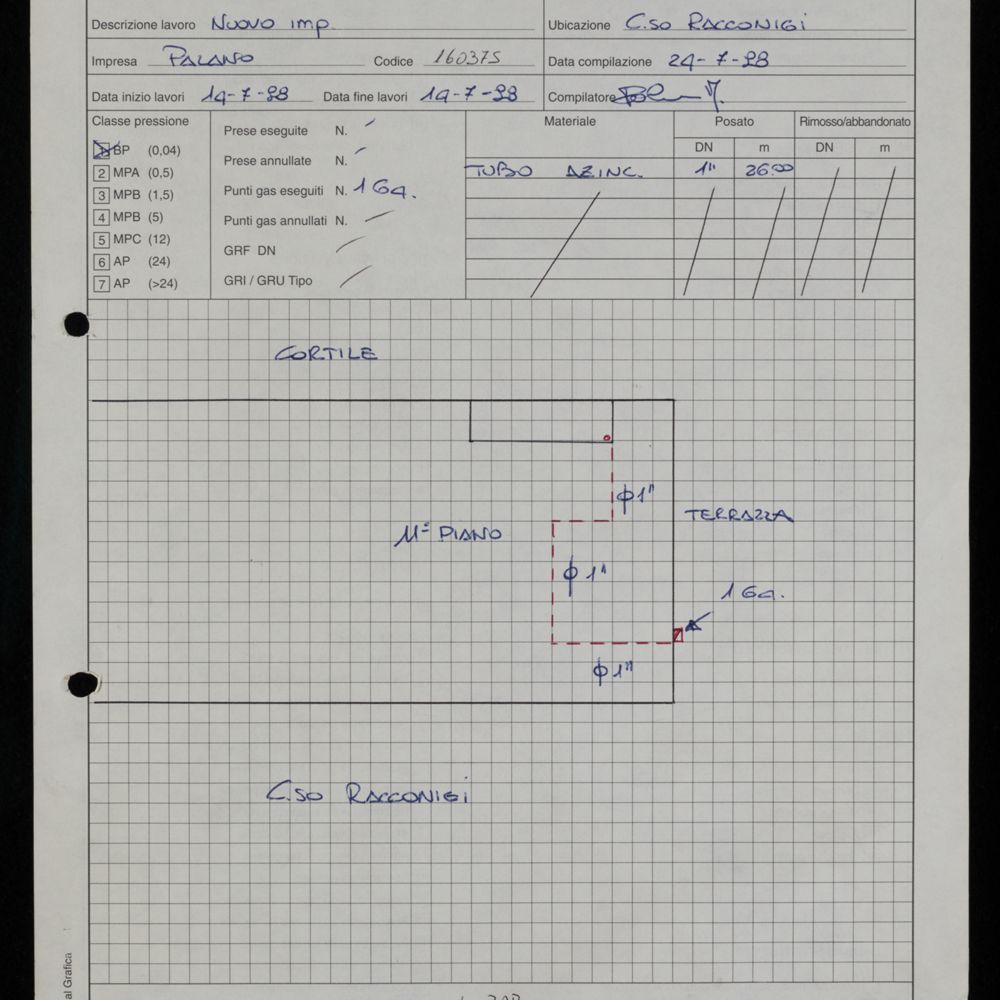 Descrizione lavoro NUOVO imp. Ubicazione C.SO RACCONIGI
Impresa PALANO Codice 160375 Data compilazione 24-7-98
Data inizio lavori 14-7-98 Data fine lavori 14-7-98 Compilatore
Classe pressione Materiale Posato Rimosso/abbandonato
DN m DN m
Prese eseguite N.
1 BP (0,04)
Prese annullate N.
TUBO AZINC. 1" 26.00
2 MPA (0,5)
Punti gas eseguiti N. 1 Ga.
3 MPB (1,5)
4 MPB (5)
Punti gas annullati N.
5 MPC (12)
GRF DN
6 AP (24)
GRI / GRU Tipo
7 AP (>24)
CORTILE
ϕ1"
TERRAZZA
11° PIANO
ϕ 1"
1 Ga.
ϕ1"
C.SO RACCONIGI
al Grafica